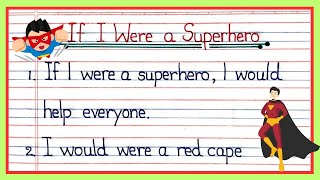 If I Were a Superhero
1. If I were a superhero, I would
help everyone.
2 I would were a red cape